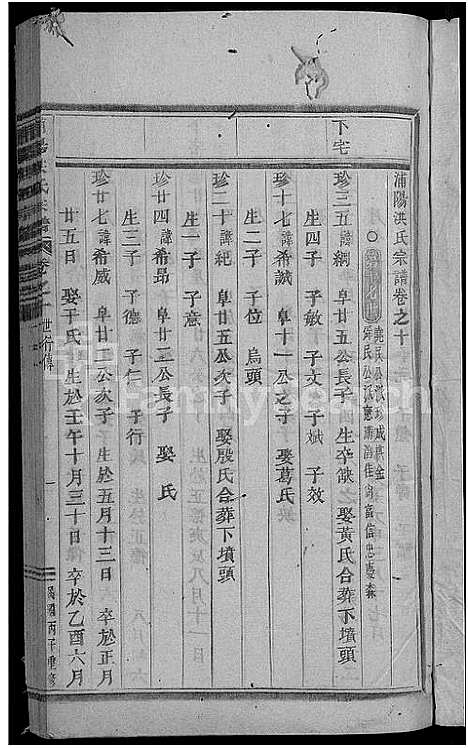 下宅
浦陽洪氏宗譜卷之十
堯民公派珍咸恭金
舜民公派憲肅浩佳尙富信忠慶森
珍三五諱綱 阜廿五公長子 生卒缺 娶黃氏合葬下墳頭
生四子 子敏 子文 子斌 子效
珍十七諱希誠 阜十一公之子 娶葛氏
生二子 子位 烏頭
珍二十諱紀 阜廿五公次子 娶殷氏合葬下墳頭
生一子 子意
珍廿四諱希昂 阜廿二公長子 娶 氏
生三子 子德 子仁 子行
珍廿七諱希威 阜廿二公次子 生於五月十三日 卒於正月
廿五日 娶于氏 生於壬午十月三十日 卒於乙酉六月
洪氏宗譜 卷之十 世行傳
一
民國丙子重修
familysearch